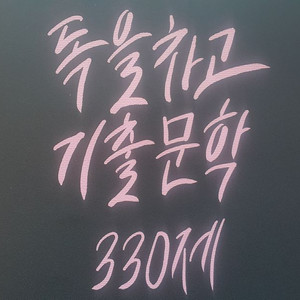 독을차고
기출문학
330제